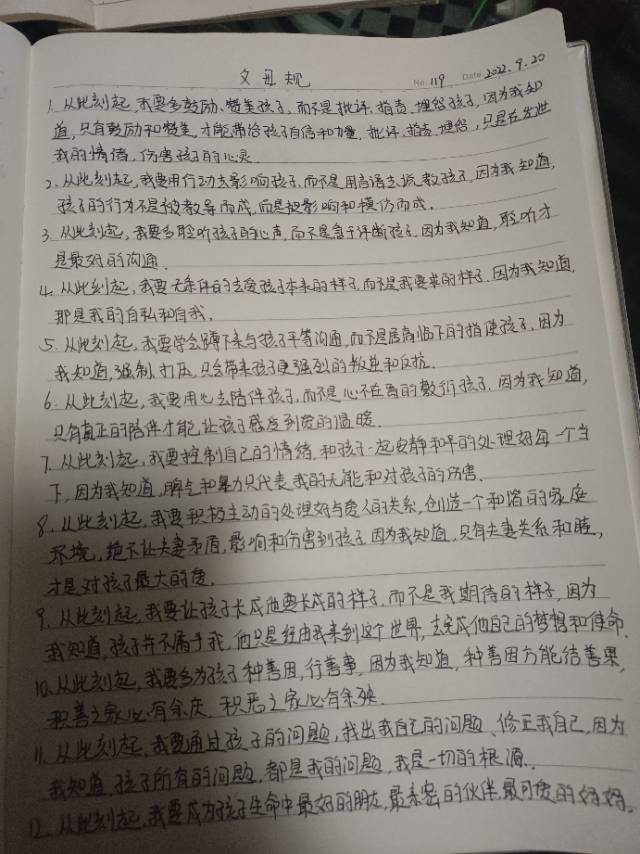 父母规
No. 119 Date 2022.9.20
1. 从此刻起,我要多鼓励、赞美孩子,而不是批评、指责、埋怨孩子,因为我知
道,只有鼓励和赞美,才能带给孩子自信和力量,批评、指责、埋怨,只是在发泄
我的情绪,伤害孩子的心灵。
2、从此刻起,我要用行动去影响孩子,而不是用言语去说教孩子,因为我知道,
孩子的行为不是被教导而成,而是被影响和模仿而成。
3、从此刻起,我要多聆听孩子的心声,而不是急于评断孩子,因为我知道,聆听才
是最好的沟通。
4、从此刻起,我要无条件的去爱孩子本来的样子,而不是我要求的样子,因为我知道,
那是我的自私和自我。
5、从此刻起,我要学会蹲下来与孩子平等沟通,而不是居高临下的指使孩子,因为
我知道,强制、打压,只会带来孩子更强烈的叛逆和反抗。
6、从此刻起,我要用心去陪伴孩子,而不是心不在焉的敷衍孩子,因为我知道,
只有真正的陪伴才能让孩子感受到爱的温暖。
7、从此刻起,我要控制自己的情绪,和孩子一起安静和平的处理好每一个当
下,因为我知道,脾气和暴力只代表我的无能和对孩子的伤害。
8、从此刻起,我要积极主动的处理好与爱人的关系,创造一个和谐的家庭
环境,绝不让夫妻矛盾,影响和伤害到孩子,因为我知道,只有夫妻关系和睦,
才是对孩子最大的爱。
9、从此刻起,我要让孩子长成他要长成的样子,而不是我期待的样子,因为
我知道,孩子并不属于我,他只是经由我来到这个世界,去完成他自己的梦想和使命。
10、从此刻起,我要多为孩子种善因,行善事,因为我知道,种善因方能结善果,
积善之家必有余庆,积恶之家必有余殃。
11、从此刻起,我要通过孩子的问题,找出我自己的问题、修正我自己,因为
我知道,孩子所有的问题,都是我的问题,我是一切的根源。
12、从此刻起,我要成为孩子生命中最好的朋友,最亲密的伙伴,最可爱的妈妈。